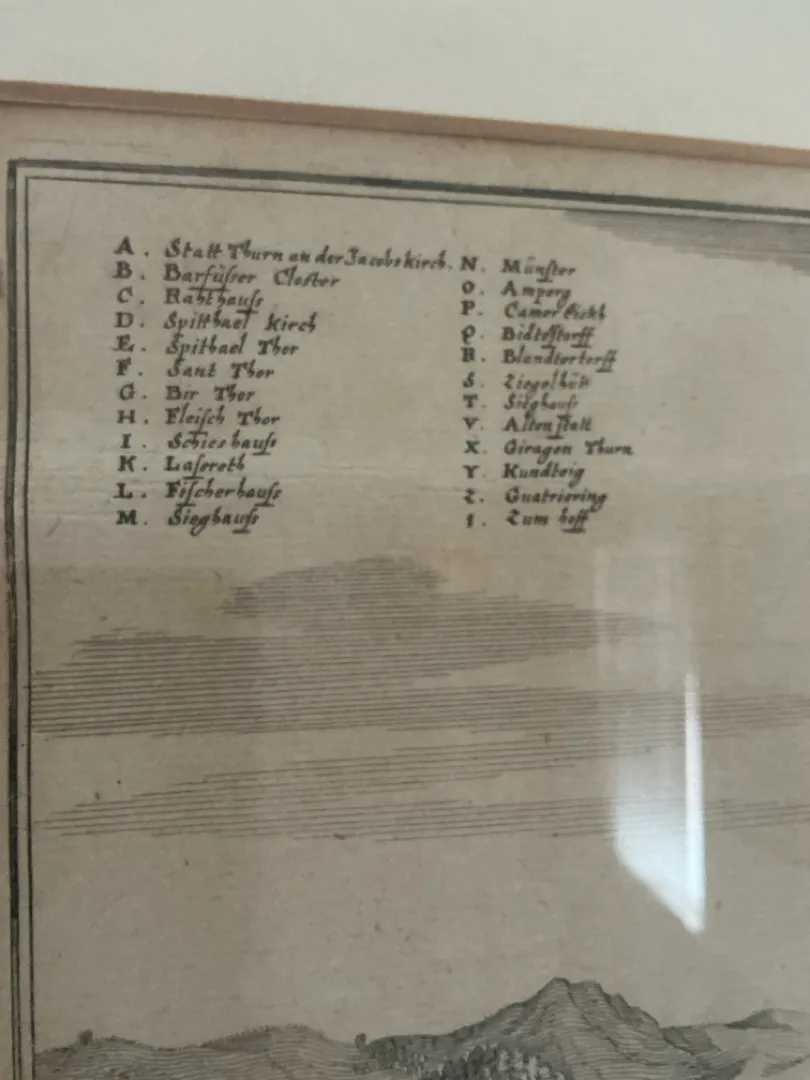 A. Statt Thurn an der Jacobskirch.
B. Barfüsser Closter
C. Rahthauß
D. Spitthael Kirch
E. Spithael Thor
F. Sant Thor
G. Bir Thor
H. Fleisch Thor
I. Schieshauß
K. Lasereth
L. Fischerhauße
M. Sieghauß
N. Münster
O. Amperg
P. Camer
Q.
R.
S. Ziegelhütt
T. Sieghauß
V. Altenstatt
X. Giragen Thurn
Y. Kundteig
Z. Gnatriering
1. Zum hoff